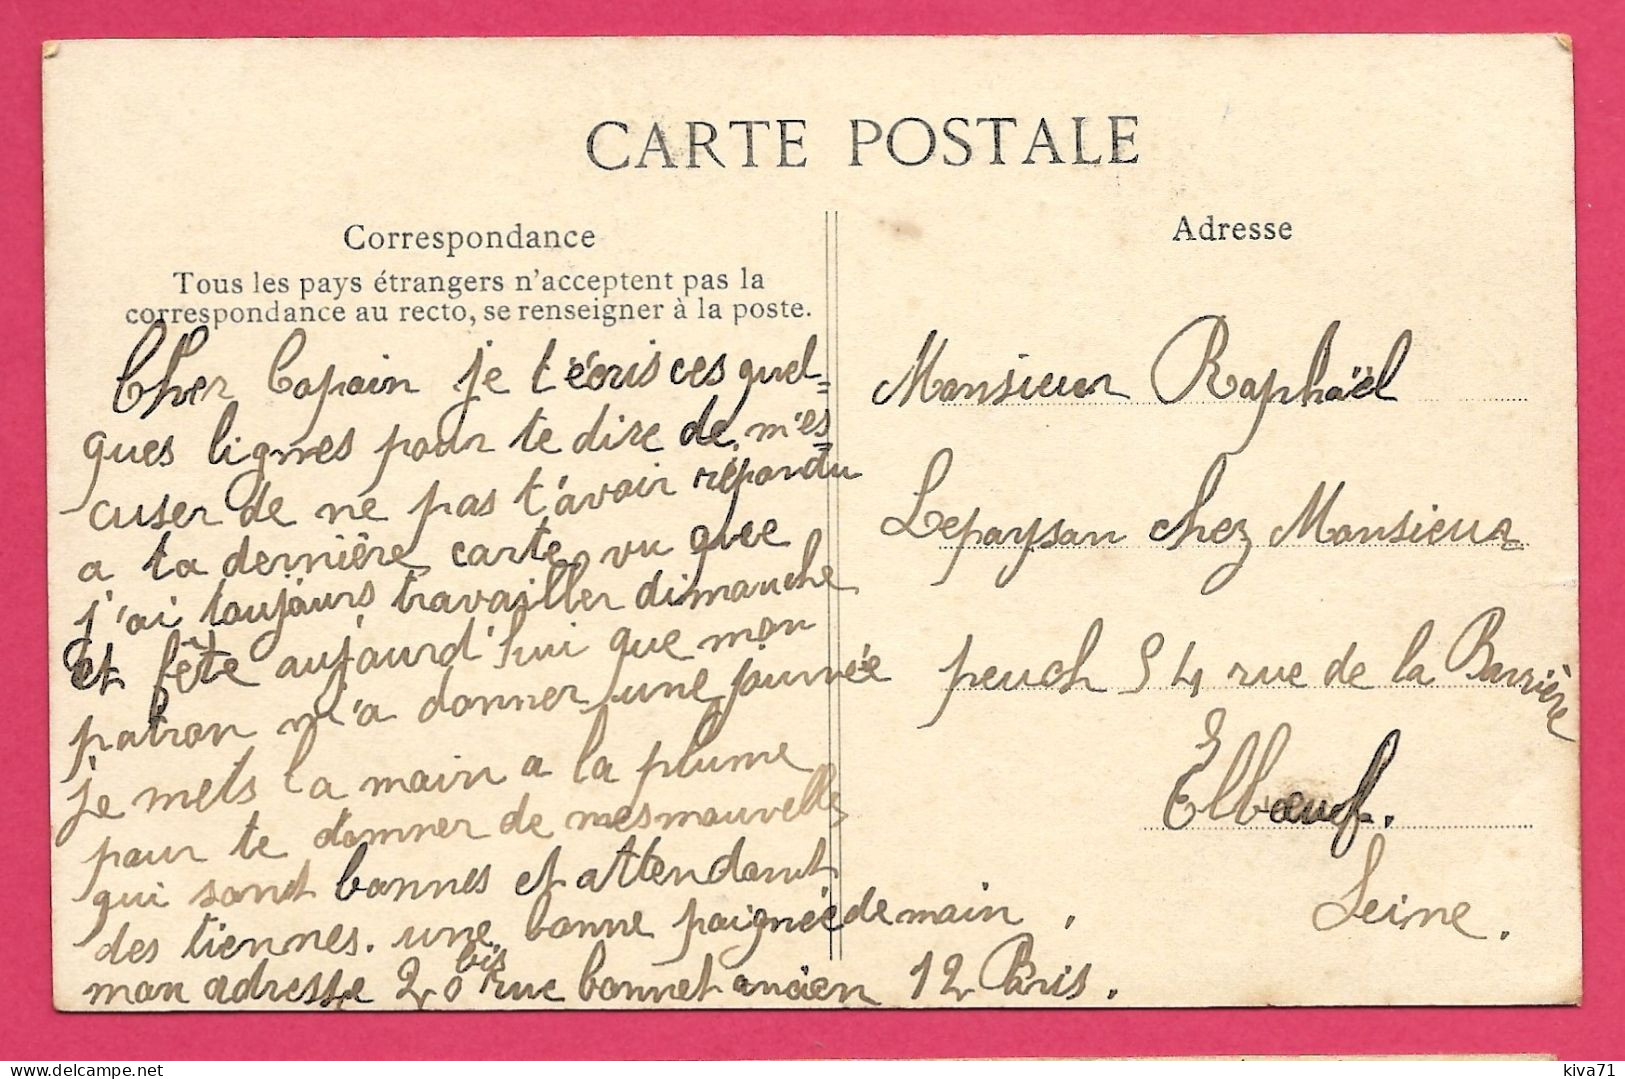 CARTE POSTALE
Correspondance
Tous les pays étrangers n'acceptent pas la
correspondance au recto, se renseigner à la poste.
Cher Copain je t'écris ces quel=
ques lignes pour te dire de m'es=
cuser de ne pas t'avoir répondu
a ta dernière carte, vu que
j'ai toujours travailler dimanche
et fête aujourd'hui que mon
patron m'a donner une journée
je mets la main a la plume
pour te donner de mes nouvelles
qui sont bonnes et attendant
des tiennes. une bonne poignée de main,
mon adresse 20 bis rue bonnet ancien 12 Paris.
Adresse
Monsieur Raphaël
Lepaysan chez Monsieur
peuch 54 rue de la Barrière
Elbœuf.
Seine.
kiva71